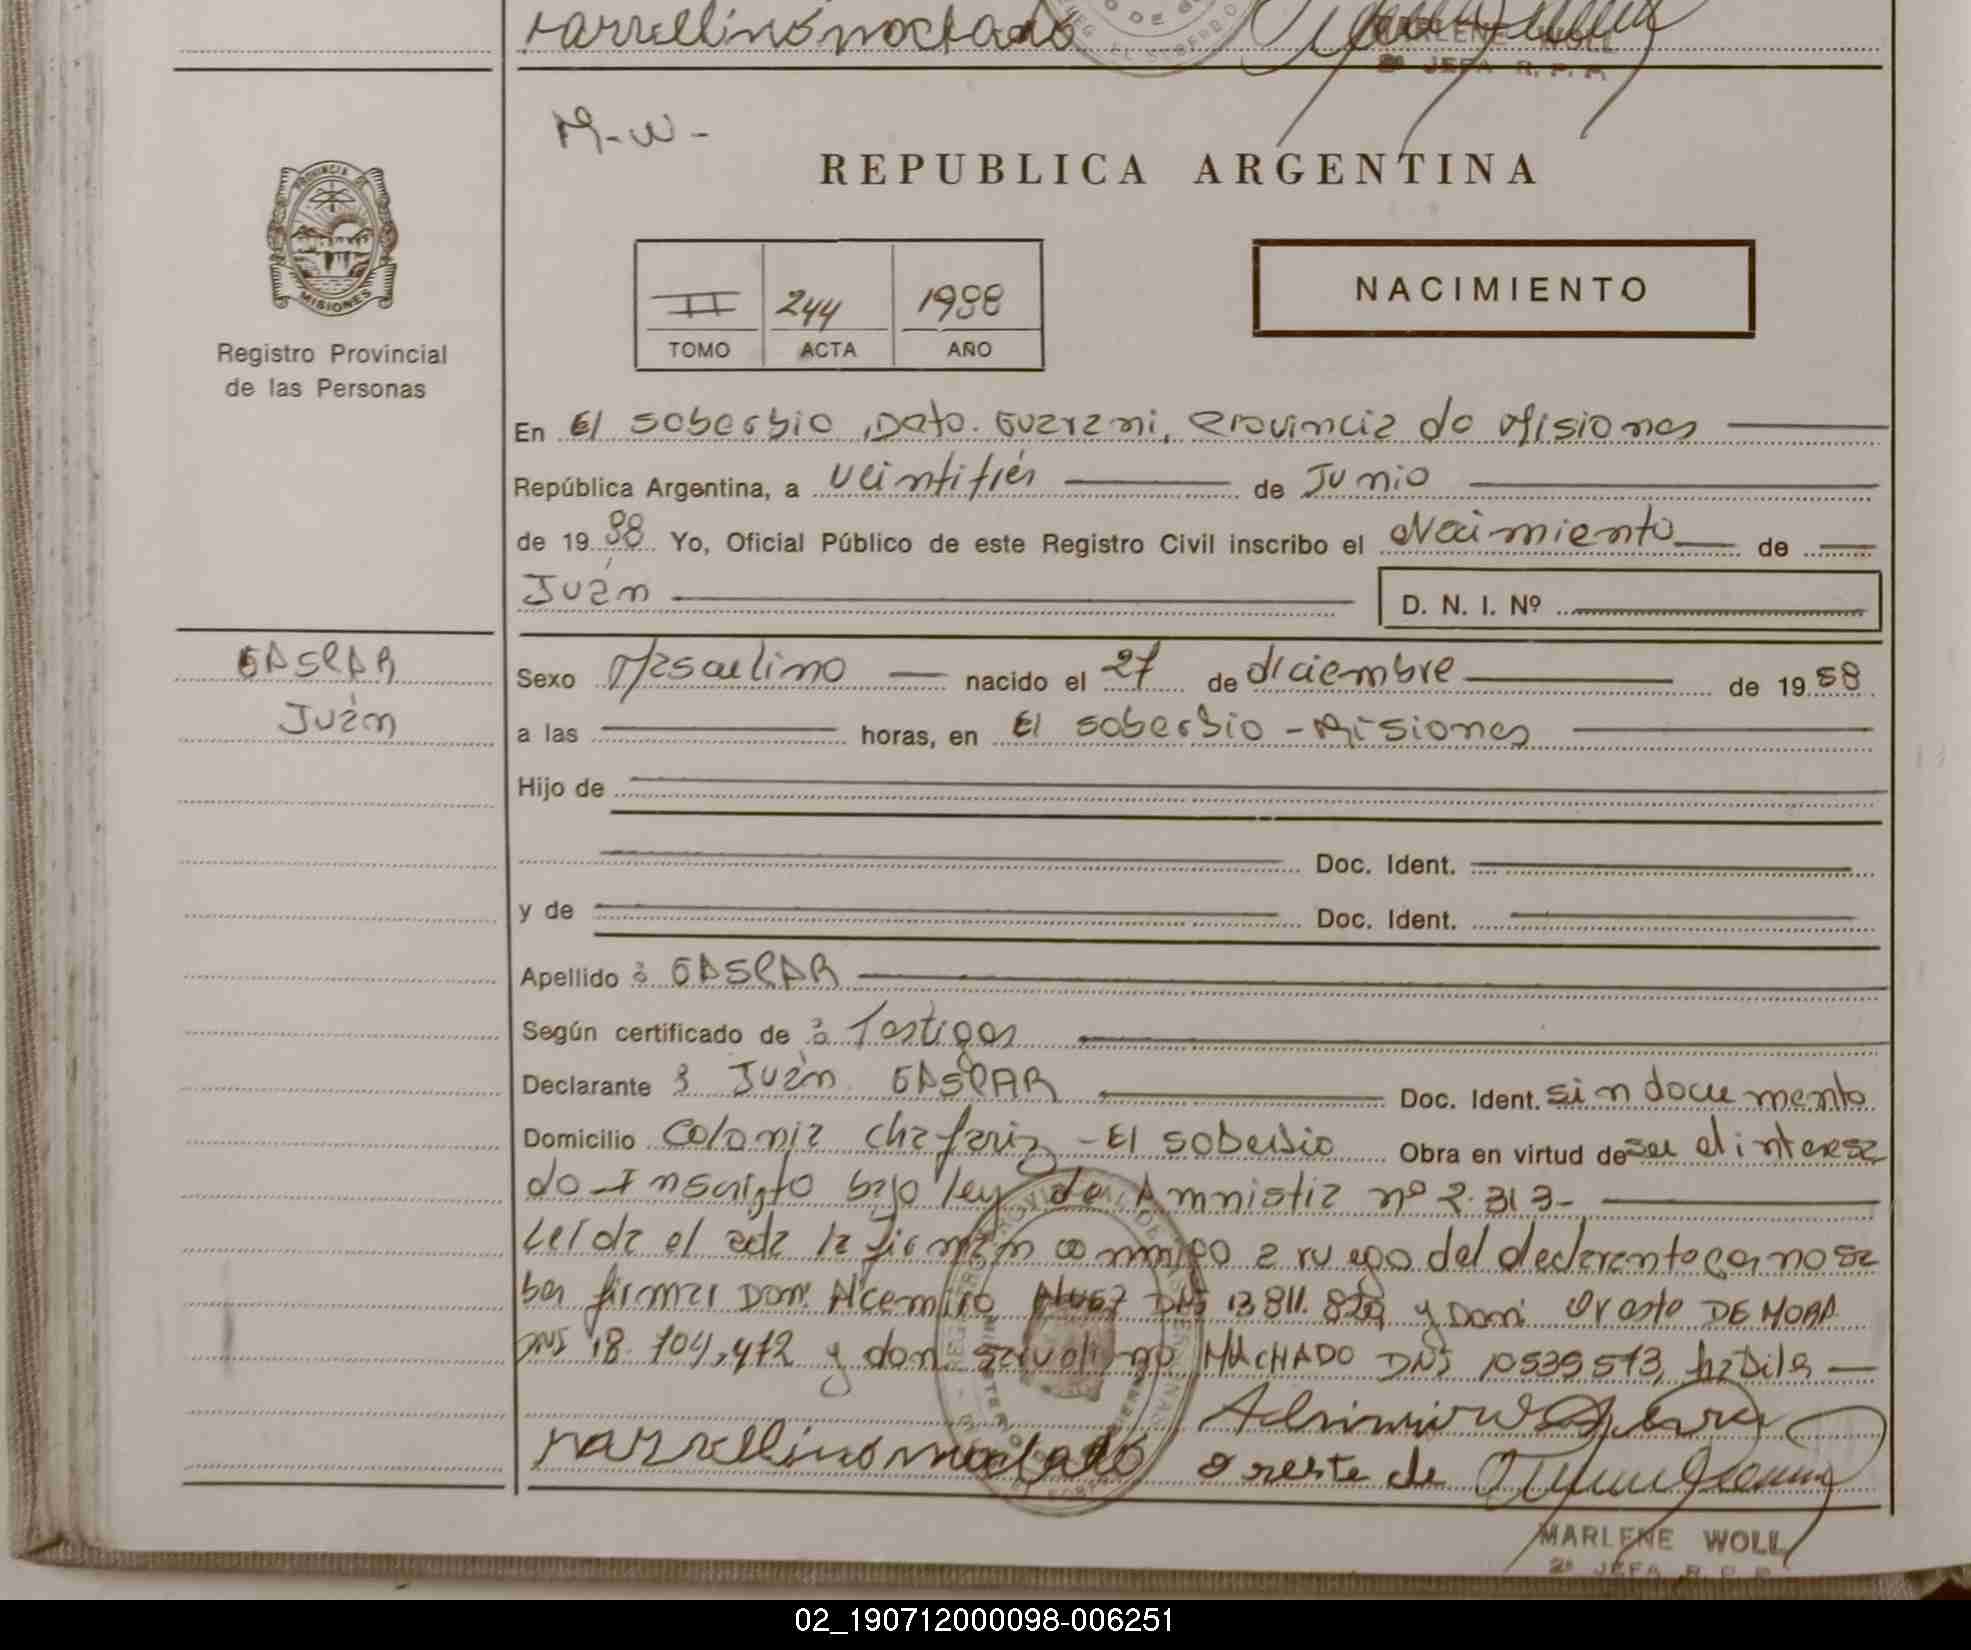 MARLENE WOLL
2ª JEFA R. P. P.
M-W-
REPUBLICA ARGENTINA
PROVINCIA DE
MISIONES
Registro Provincial
de las Personas
II 244 1988
TOMO ACTA AÑO
NACIMIENTO
En El Soberbio, Dpto. Guarani, Provincia de Misiones
República Argentina, a veintitrés de Junio
de 1988 Yo, Oficial Público de este Registro Civil inscribo el Nacimiento de
Juán
D. N. I. Nº
GASPAR
Juán
Sexo Masculino nacido el 27 de diciembre de 1958
a las horas, en El Soberbio - Misiones
Hijo de
Doc. Ident.
y de Doc. Ident.
Apellido : GASPAR
Según certificado de : Testigos
Declarante : Juán GASPAR Doc. Ident. sin documento
Domicilio Colonia Chafariz - El Soberbio Obra en virtud de ser el interesa
do - Inscripto bajo ley de Amnistia nº 2.313-
Leída el acta la firman conmigo a ruego del declarante por no sa
ber firmar Don: y Don: Oreste DE MORA
DNI 18.704,472 y don MACHADO DNI 10535573, habils
Oreste de
MARLENE WOLL
2ª JEFA R. P. P.
02_190712000098-006251